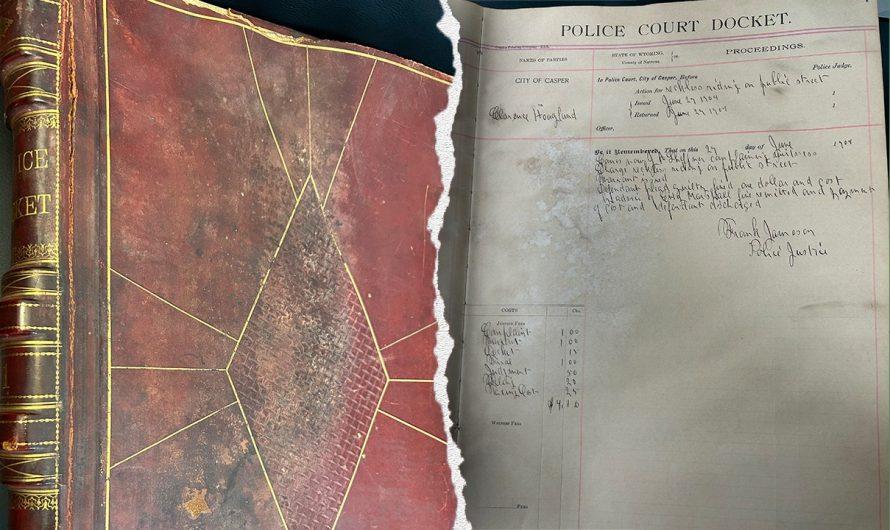 ICE
KET
1
POLICE COURT DOCKET.
NAMES OF PARTIES
STATE OF WYOMING, } ss.
County of Natrona.
PROCEEDINGS.
CITY OF CASPER
In Police Court, City of Casper, Before
Police Judge.
Action for reckless riding on public street
Clarence Hoagland
Issued June 27 190
Returned June 27 190
Officer.
Be it Remembered, That on this 27 day of June 190
complaining witness
Charge reckless riding on public street
Warrant issued
Defendant plead guilty fined one dollar and cost
Marshall fine remitted and payment
of cost and defendant discharged
Frank Jameson
Police Justice
COSTS
Cts.
JUSTICE FEES
Complaint 1 00
1 00
Docket 15
1 00
Judgment 50
25
$ 4,10
WITNESS FEES
FEES